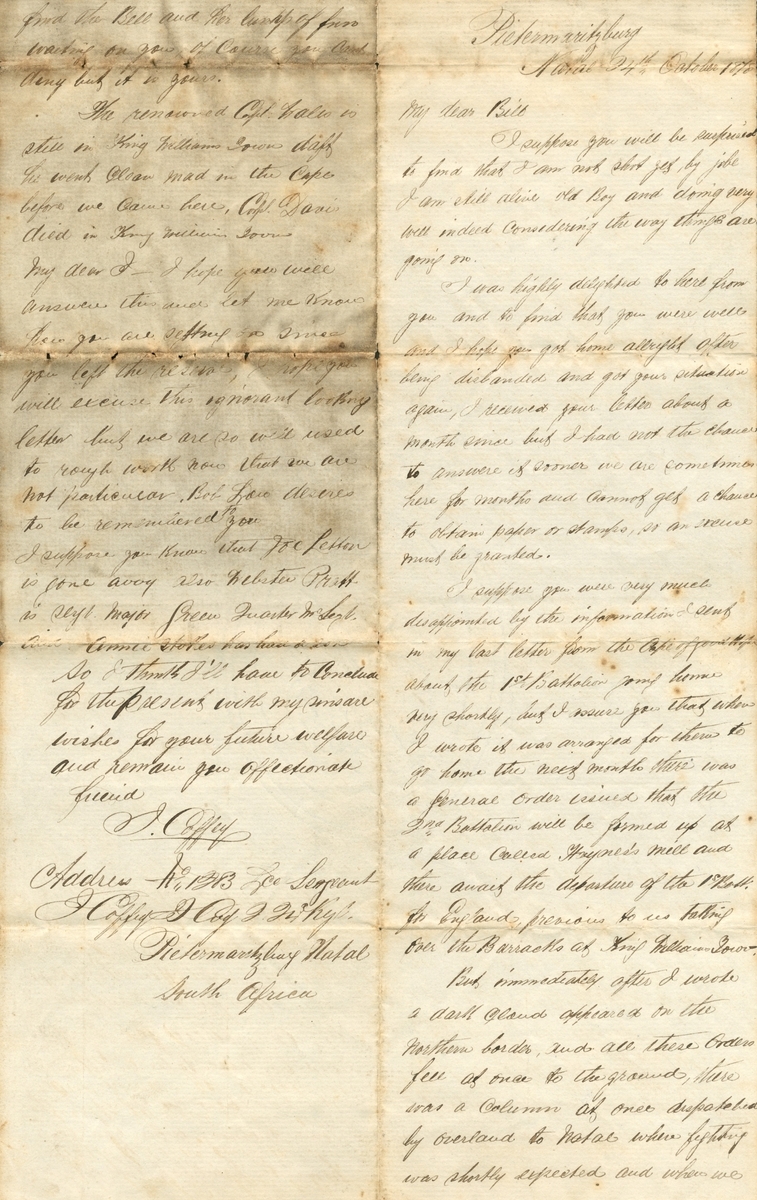 Pietermaritzburg
24th October 187
My dear Bill
I suppose you will be surprised
to find that I am not shot yet by jobe
I am still alive old Boy and doing very
well indeed considering the way things are
going on.
I was highly delighted to here from
you and to find that you were well
and I hope you got home allright after
being disbanded and got your situation
again, I received your letter about a
month since but I had not the chance
to answere it sooner we are sometimes
here for months and cannot get a chance
to obtain paper or stamps, so an excuse
must be granted.
I suppose you were very much
disappointed by the information I sent
in my last letter from the Cape of Good Hope
about the 1st Battalion going home
very shortly, but I assure you that when
I wrote it was arranged for them to
go home the next month there was
a General Order issued that the
2nd Battalion will be formed up at
a place Called Haynes's Mill and
there await the departure of the 1st Batt.
for England, previous to us taking
over the Barracks at King Williams Town.
But immediately after I wrote
a dark Cloud appeared on the
Northern border, and all these Orders
fell at once to the ground, there
was a Column at once dispatched
by overland to Natal where fighting
was shortly expected and when we
find the Bell and her lump of fun
waiting on you, of Course you cant
deny but it is yours.
The renowned Capt. Hales is
still in King Williams Town daft
he went Clean mad in the Cape
before we Came here, Capt. Davis
died in King William Town
My dear J— I hope you will
answere this and let me Know
how you are getting on since
you left the reserve, I hope you
will excuse this ignorant looking
letter but we are so we'll used
to rough work now that we are
not particular, Bob Low desires
to be remembered to you
I suppose you Know that Joe
is gone away also Webster Pratt
is Sergt. Major Green Quarter Mr Sergt.
Annie Stokes has had a son
So I think I'll have to Conclude
for the present with my sinsare
wishes for your future welfare
and remain you affectionate
friend
J. Coffey
Address — No 1303 Lce Sergeant
J Coffey D Coy 2 24 Regt.
Pietermaritzburg Natal
South Africa